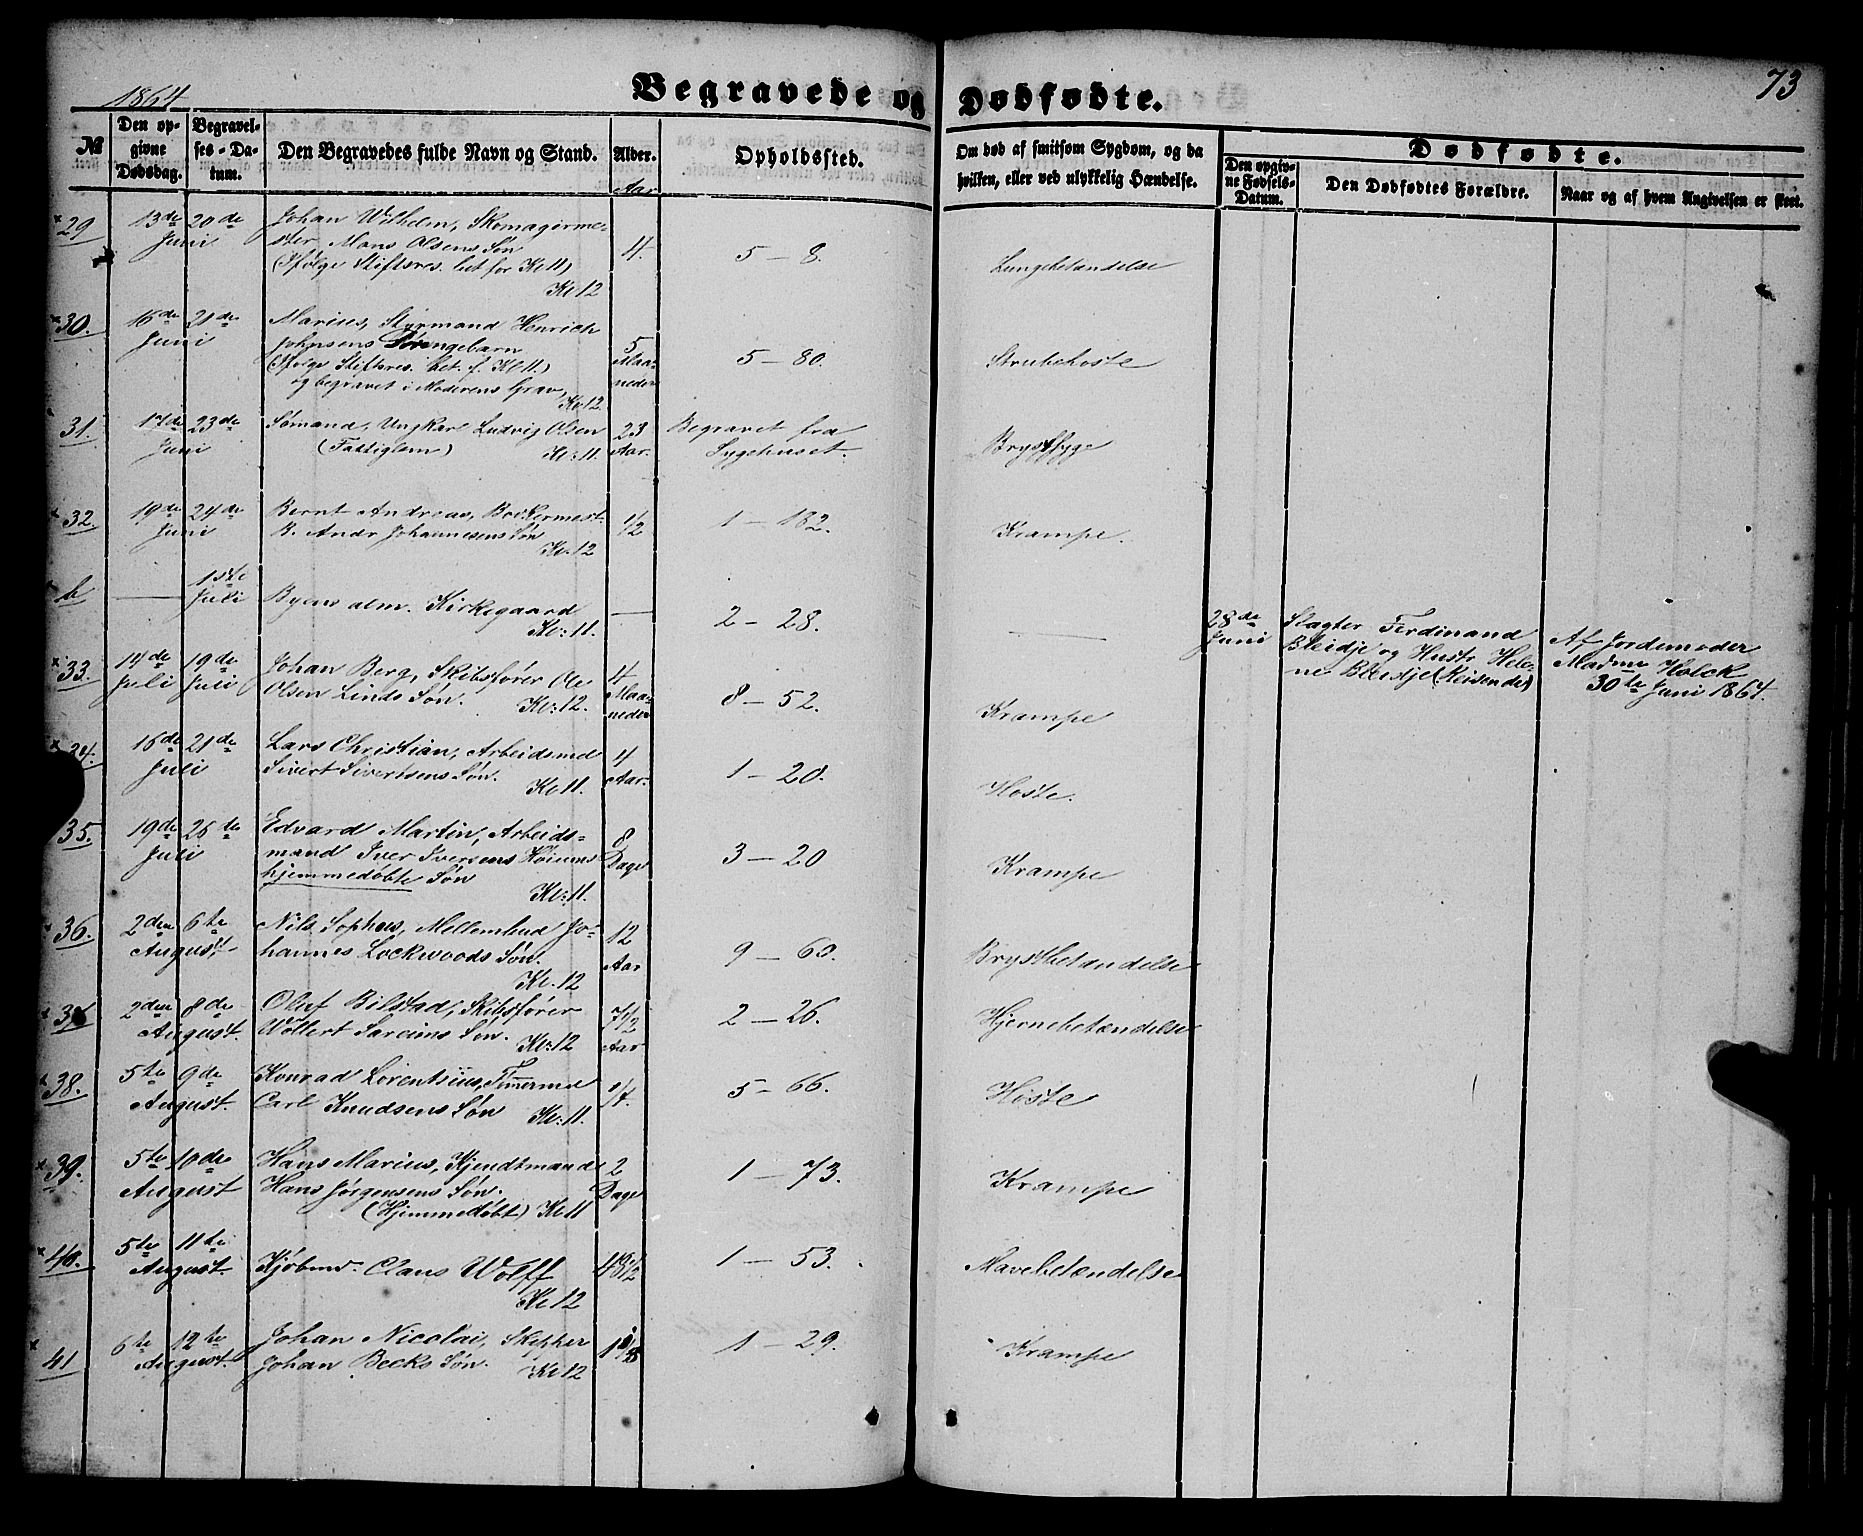 1864
Begravede og Dødfødte.
73
№
Den opgivne Dødsdag.
Begravelses-Datum.
Den Begravedes fulde Navn og Stand.
Alder.
Aar
Opholdssted.
Om død af smitsom Sygdom, og da
hvilken, eller ved ulykkelig Hændelse.
Dødfødte.
Den opgivne Fødsels-Datum.
Den Dødfødtes Forældre.
Naar og af hvem Angivelsen er skeet.
29 13de Juni 20de Johan Wilhelm, Skomagerme-
ster Mons Olsens Søn 4. 5 - 8. Lungebetændelse
(Ifølge Stiftsres. bet for Kl 11)
Kl 12
30. 16de Juni 21de Marius, Styrmand Henrich
Johnsens Drengebarn 5 Maaneder 5 - 80. Strubehoste
(Ifølge Stiftsres. bet. f. Kl 11.)
og begravet i Moderens Grav,
Kl: 12
31. 17de Juni 23de Sømand, Ungkarl Ludvig Olsen 23 Aar. Begravet fra
(Fattiglem) Kl: 11. Sygehuset. Brystsyge
32. 19de Juni 24de Bernt Andreas, Bødkermest.
B. Andr Johannesens Søn 1/2 1 - 182. Krampe.
Kl. 12
b — 1ste Juli Byens alm. Kirkegaard — 2 - 28. —
Kl: 11.
28de Juni Slagter Ferdinand
Bleidje og Hustr Hele-
ne Bleidje (Reisende)
Af Jordemoder
Madme Holck
30te Juni 1864.
33. 14de Juli 19de Juli Johan Berg, Skibsfører Ole
Olsen Linds Søn. Kl: 12. 4 Maaneder 8 - 52. Krampe
34. 16de Juli 21de Lars Christian, Arbeidsmd
Sivert Sivertsens Søn. 4 Aar. 1 - 20. Hoste.
Kl 11.
35. 19de Juli 25de Edvard Martin, Arbeids-
mand Iver Iversens 8 Dage 3 - 20 Krampe
hjemmedøbte Søn
Kl: 11.
36. 2den 6te August Nils Sophus, Mellembud Jo-
hannes Lockwoods Søn. 12 Aar 9 - 60. Brystbetændelse
Kl. 12
2den 8de August. Oluf Bilstad, Skibsfører
Wollert Søn. 7 1/2 Aar 2 - 26. Hjernebetændelse
Kl: 12
38. 5te 9de August. Konrad Lorentsius, Tømermd
Carl Knudsens Søn Kl: 11. 5 - 66. Hoste
39. 5te 10de August Hans Marius, Kjendtmand
Hans Jørgensens Søn. 2 Dage 1 - 73. Krampe
(Hjemmedøbt) Kl 11
40. 5te 11te August. Kjøbmd. Claus Wolff 1 - 53. Mavebetændelse
Kl 12
41 6te 12te August. Johan Nicolai, Skipper
Johan Becks Søn. Kl 12 1 - 29. Krampe